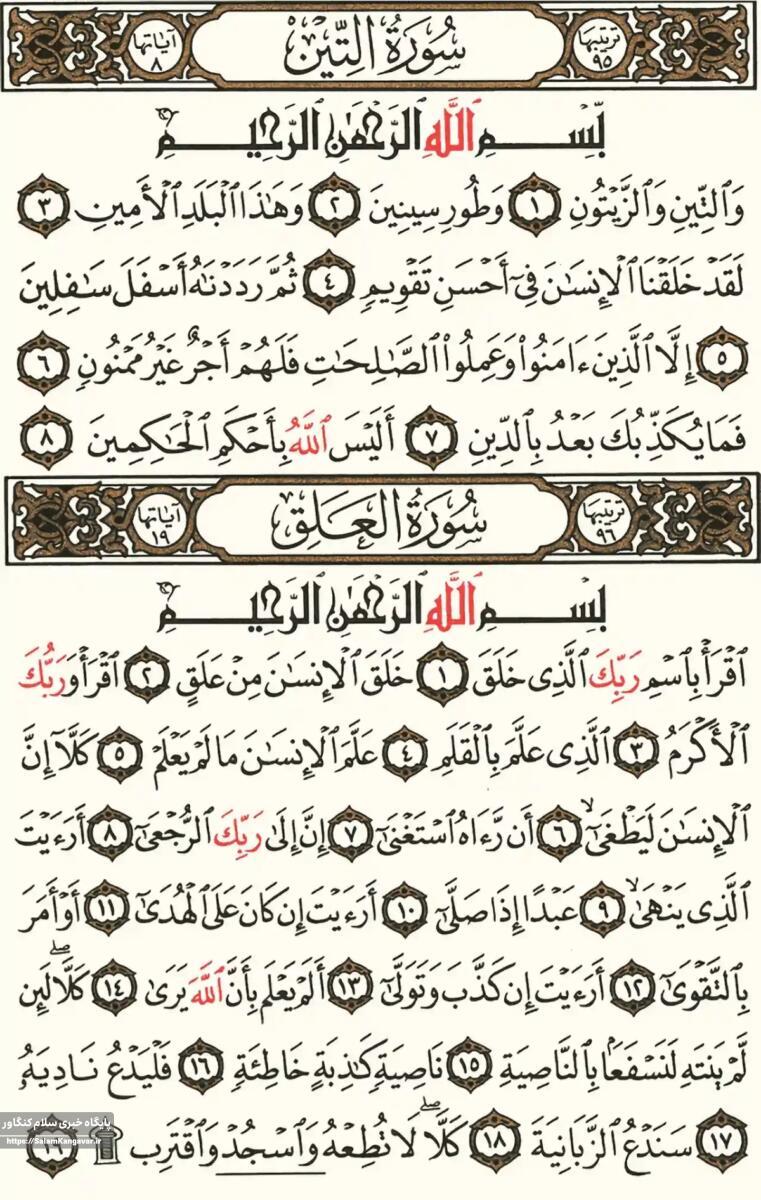 ترتيبها ٩٥ سُورَةُ التِّين آياتها ٨
بِسْمِ ٱللَّهِ ٱلرَّحْمَٰنِ ٱلرَّحِيمِ
وَٱلتِّينِ وَٱلزَّيْتُونِ ١ وَطُورِ سِينِينَ ٢ وَهَٰذَا ٱلْبَلَدِ ٱلْأَمِينِ ٣
لَقَدْ خَلَقْنَا ٱلْإِنسَٰنَ فِىٓ أَحْسَنِ تَقْوِيمٍ ٤ ثُمَّ رَدَدْنَٰهُ أَسْفَلَ سَٰفِلِينَ
٥ إِلَّا ٱلَّذِينَ ءَامَنُوا۟ وَعَمِلُوا۟ ٱلصَّٰلِحَٰتِ فَلَهُمْ أَجْرٌ غَيْرُ مَمْنُونٍ ٦
فَمَا يُكَذِّبُكَ بَعْدُ بِٱلدِّينِ ٧ أَلَيْسَ ٱللَّهُ بِأَحْكَمِ ٱلْحَٰكِمِينَ ٨
ترتيبها ٩٦ سُورَةُ العَلَق آياتها ١٩
بِسْمِ ٱللَّهِ ٱلرَّحْمَٰنِ ٱلرَّحِيمِ
ٱقْرَأْ بِٱسْمِ رَبِّكَ ٱلَّذِى خَلَقَ ١ خَلَقَ ٱلْإِنسَٰنَ مِنْ عَلَقٍ ٢ ٱقْرَأْ وَرَبُّكَ
ٱلْأَكْرَمُ ٣ ٱلَّذِى عَلَّمَ بِٱلْقَلَمِ ٤ عَلَّمَ ٱلْإِنسَٰنَ مَا لَمْ يَعْلَمْ ٥ كَلَّآ إِنَّ
ٱلْإِنسَٰنَ لَيَطْغَىٰٓ ٦ أَن رَّءَاهُ ٱسْتَغْنَىٰٓ ٧ إِنَّ إِلَىٰ رَبِّكَ ٱلرُّجْعَىٰٓ ٨ أَرَءَيْتَ
ٱلَّذِى يَنْهَىٰ ٩ عَبْدًا إِذَا صَلَّىٰٓ ١٠ أَرَءَيْتَ إِن كَانَ عَلَى ٱلْهُدَىٰٓ ١١ أَوْ أَمَرَ
بِٱلتَّقْوَىٰٓ ١٢ أَرَءَيْتَ إِن كَذَّبَ وَتَوَلَّىٰٓ ١٣ أَلَمْ يَعْلَم بِأَنَّ ٱللَّهَ يَرَىٰ ١٤ كَلَّا لَئِن
لَّمْ يَنتَهِ لَنَسْفَعًۢا بِٱلنَّاصِيَةِ ١٥ نَاصِيَةٍ كَٰذِبَةٍ خَاطِئَةٍ ١٦ فَلْيَدْعُ نَادِيَهُۥ
١٧ سَنَدْعُ ٱلزَّبَانِيَةَ ١٨ كَلَّا لَا تُطِعْهُ وَٱسْجُدْ وَٱقْتَرِب ۩ ١٩
پایگاه خبری سلام کنگاور
https://SalamKangavar.ir